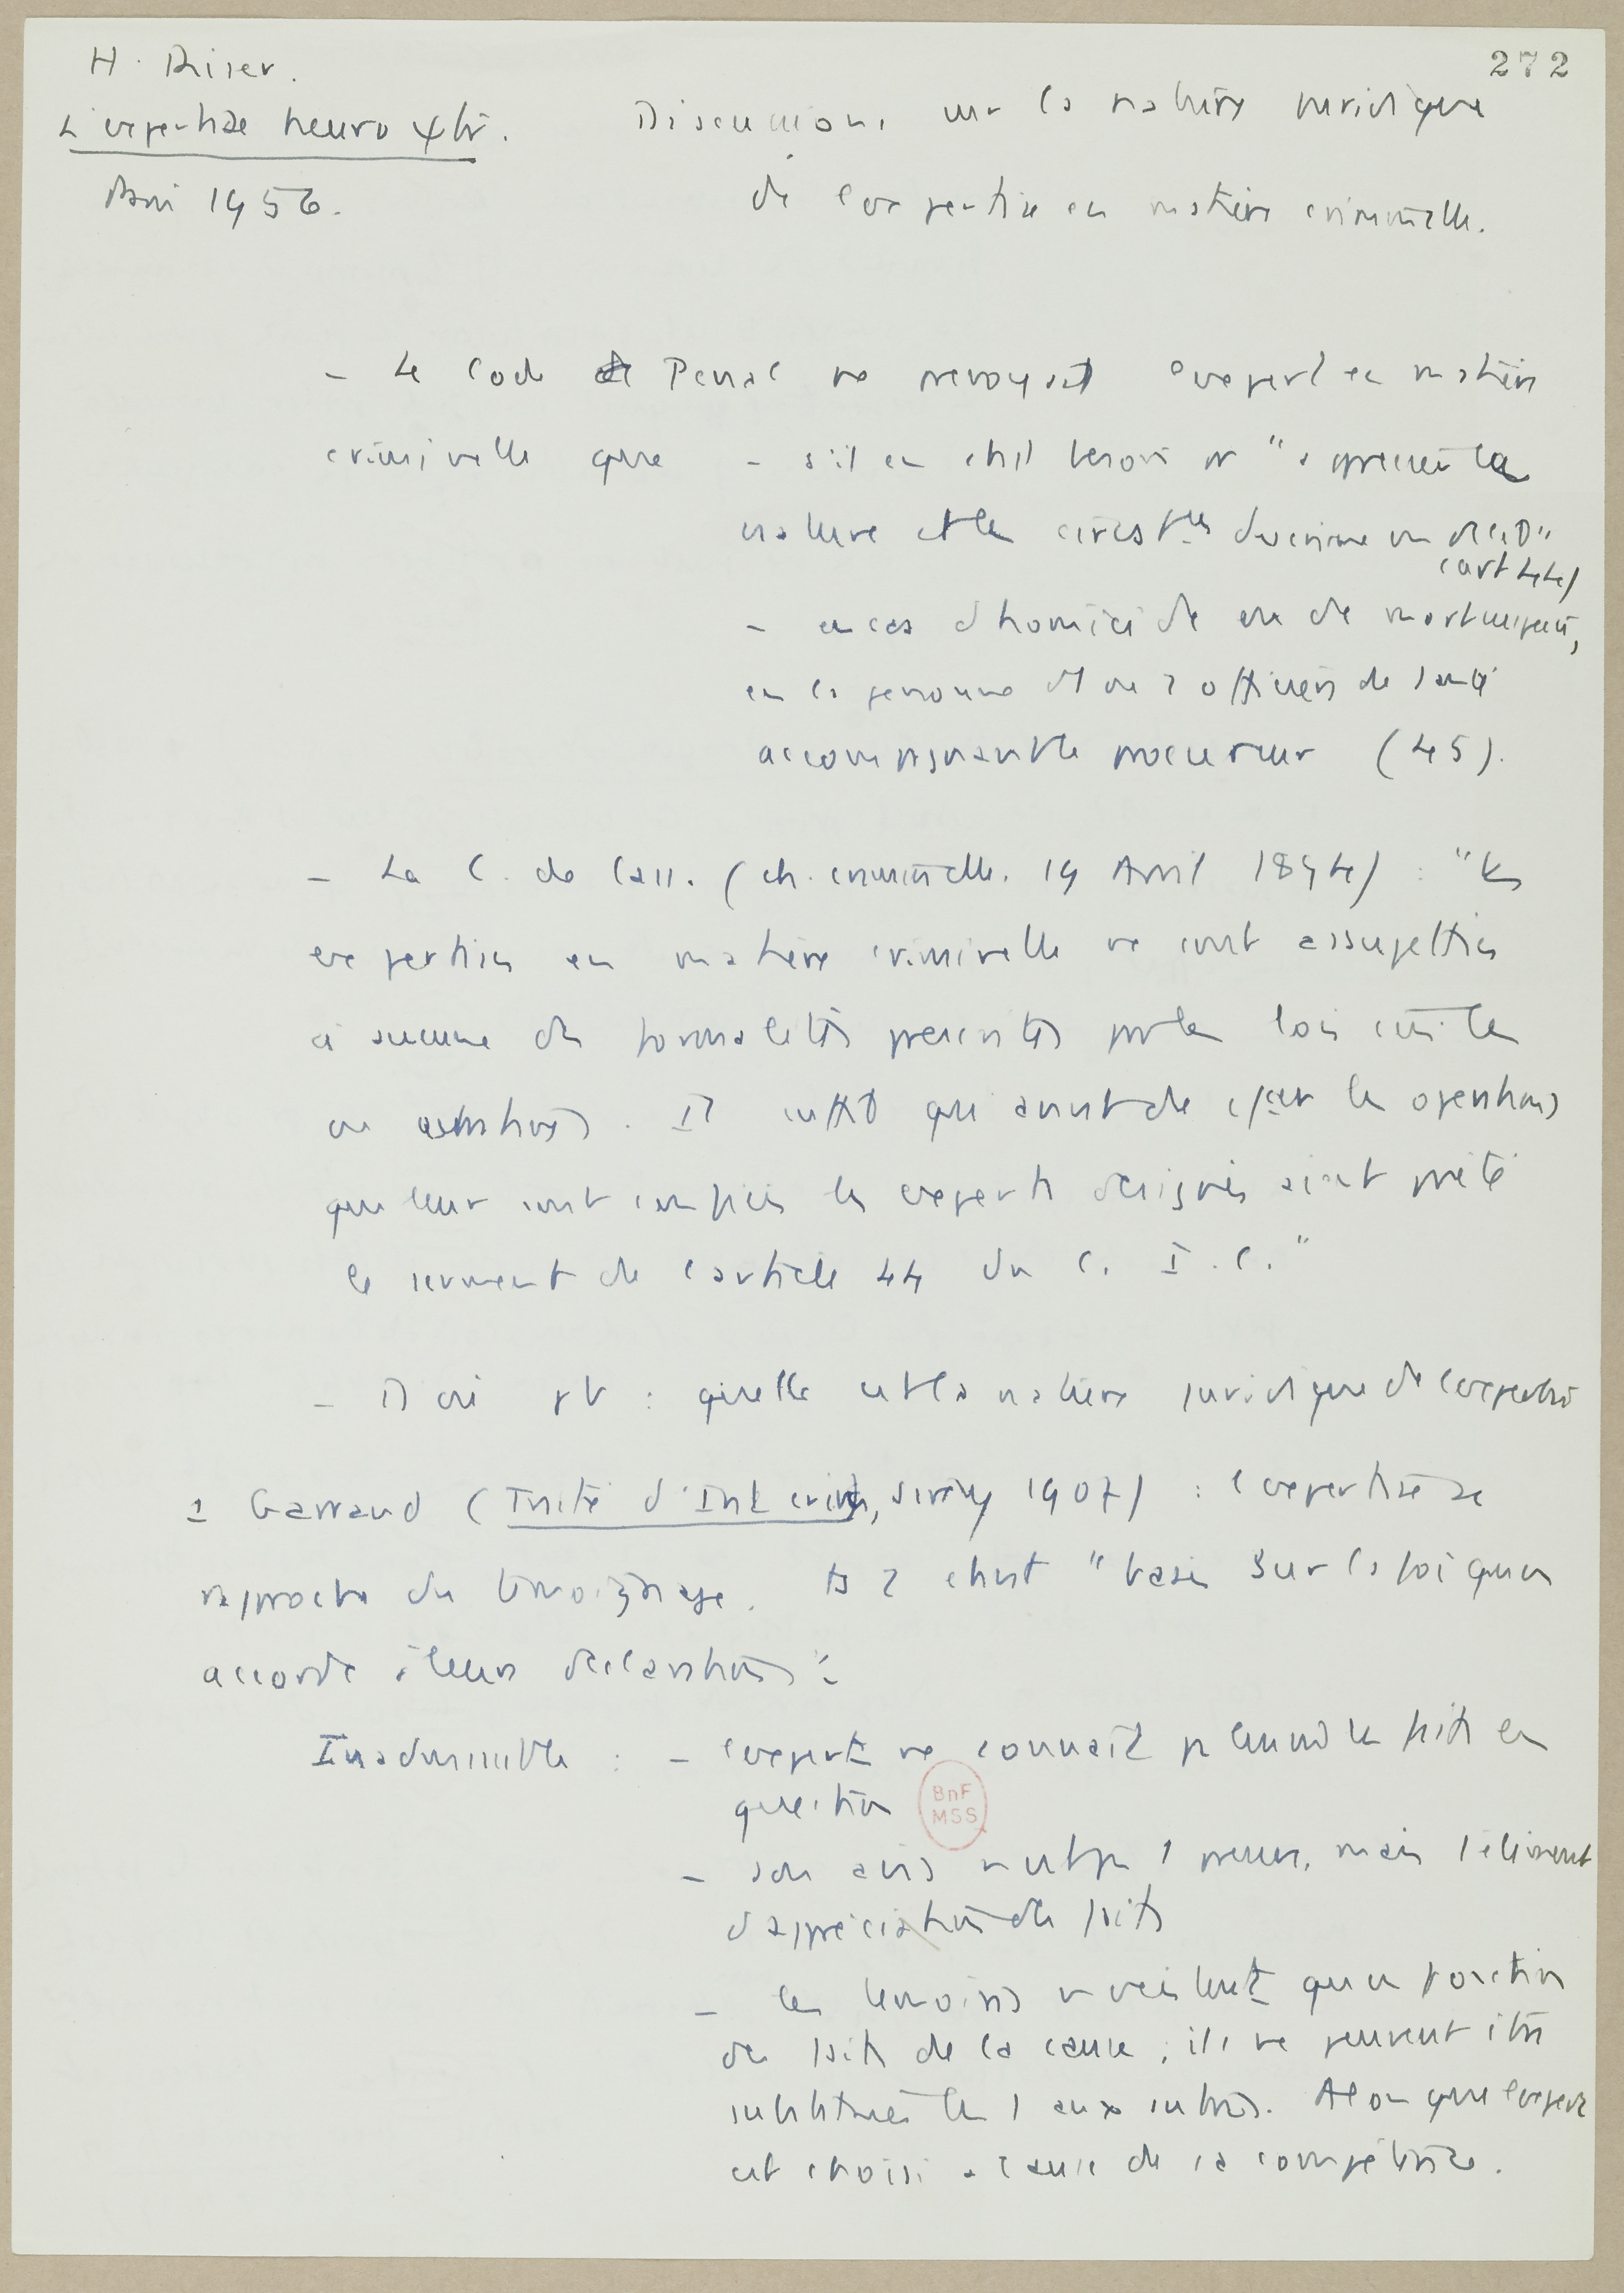 H. Riser.
272
L'expertise neuro ψtr.
Paris 1956.
Discussions sur la nature juridique
de l'expertise en matière criminelle.
- Le Code Pénal ne prévoyait l'expert en matière
criminelle que - s'il en était besoin pr "apprécier la
nature et les circstces du crime ou délit"
(art 44)
- en cas d'homicide ou de mort suspecte,
en la personne d'1 ou 2 officiers de santé
accompagnant le procureur (45).
- La C. de Cass. (ch. criminelle. 19 Avril 1894) : "les
expertises en matière criminelle ne sont assujetties
à aucune des formalités prescrites par les lois civiles
ou . Il suffit que avant de les opérations
qui leur sont confiées les experts désignés aient prêté
le serment de l'article 44 du C. I. C."
- D'où pb : quelle est la nature juridique de l'expertise
1 Garraud (Traité d'Inst crim, Sirey 1907) : l'expertise se
rapproche du témoignage. Ts 2 étant "basés sur la foi qu'on
accorde à leurs déclarations".
Inadmissible : - l'expert ne connaît pr lui les faits en
question
BnF
MSS
- son avis n'est pas 1 preuve, mais 1 élément
d'appréciation des faits
- les témoins n'existent qu'en fonction
des faits de la cause ; ils ne peuvent être
substitués les 1 aux autres. Alors que l'expert
est choisi à cause de sa compétence.